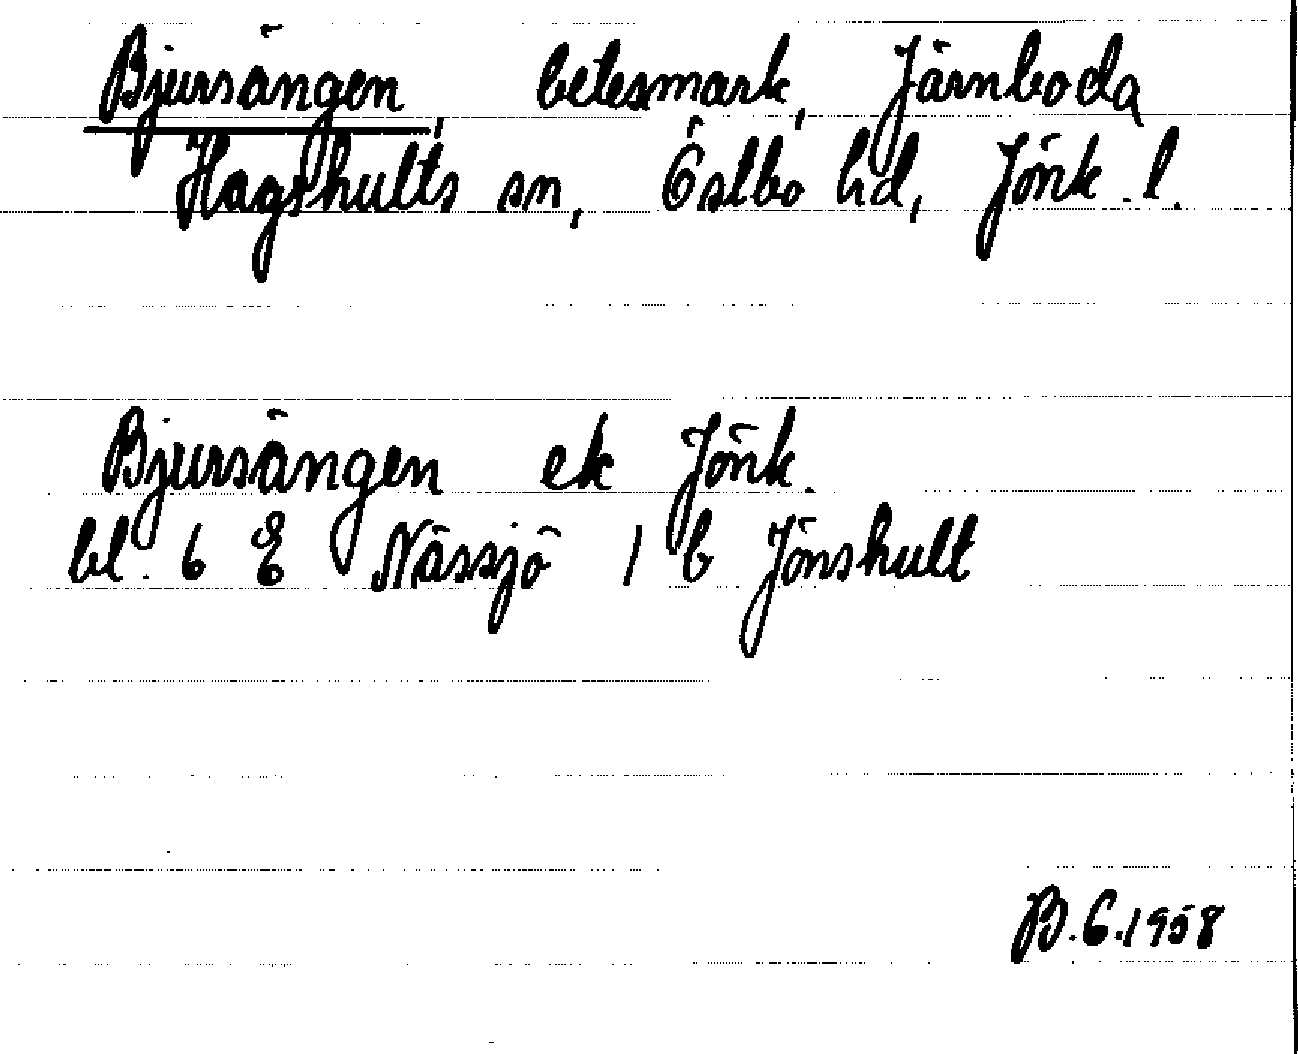 Bjursängen, betesmark, Järnboda
Hagshults sn, Östbo hd, Jönk. l.
Bjursängen ek Jönk.
bl. 6 E Nässjö 1 b Jönshult
B.G.1958